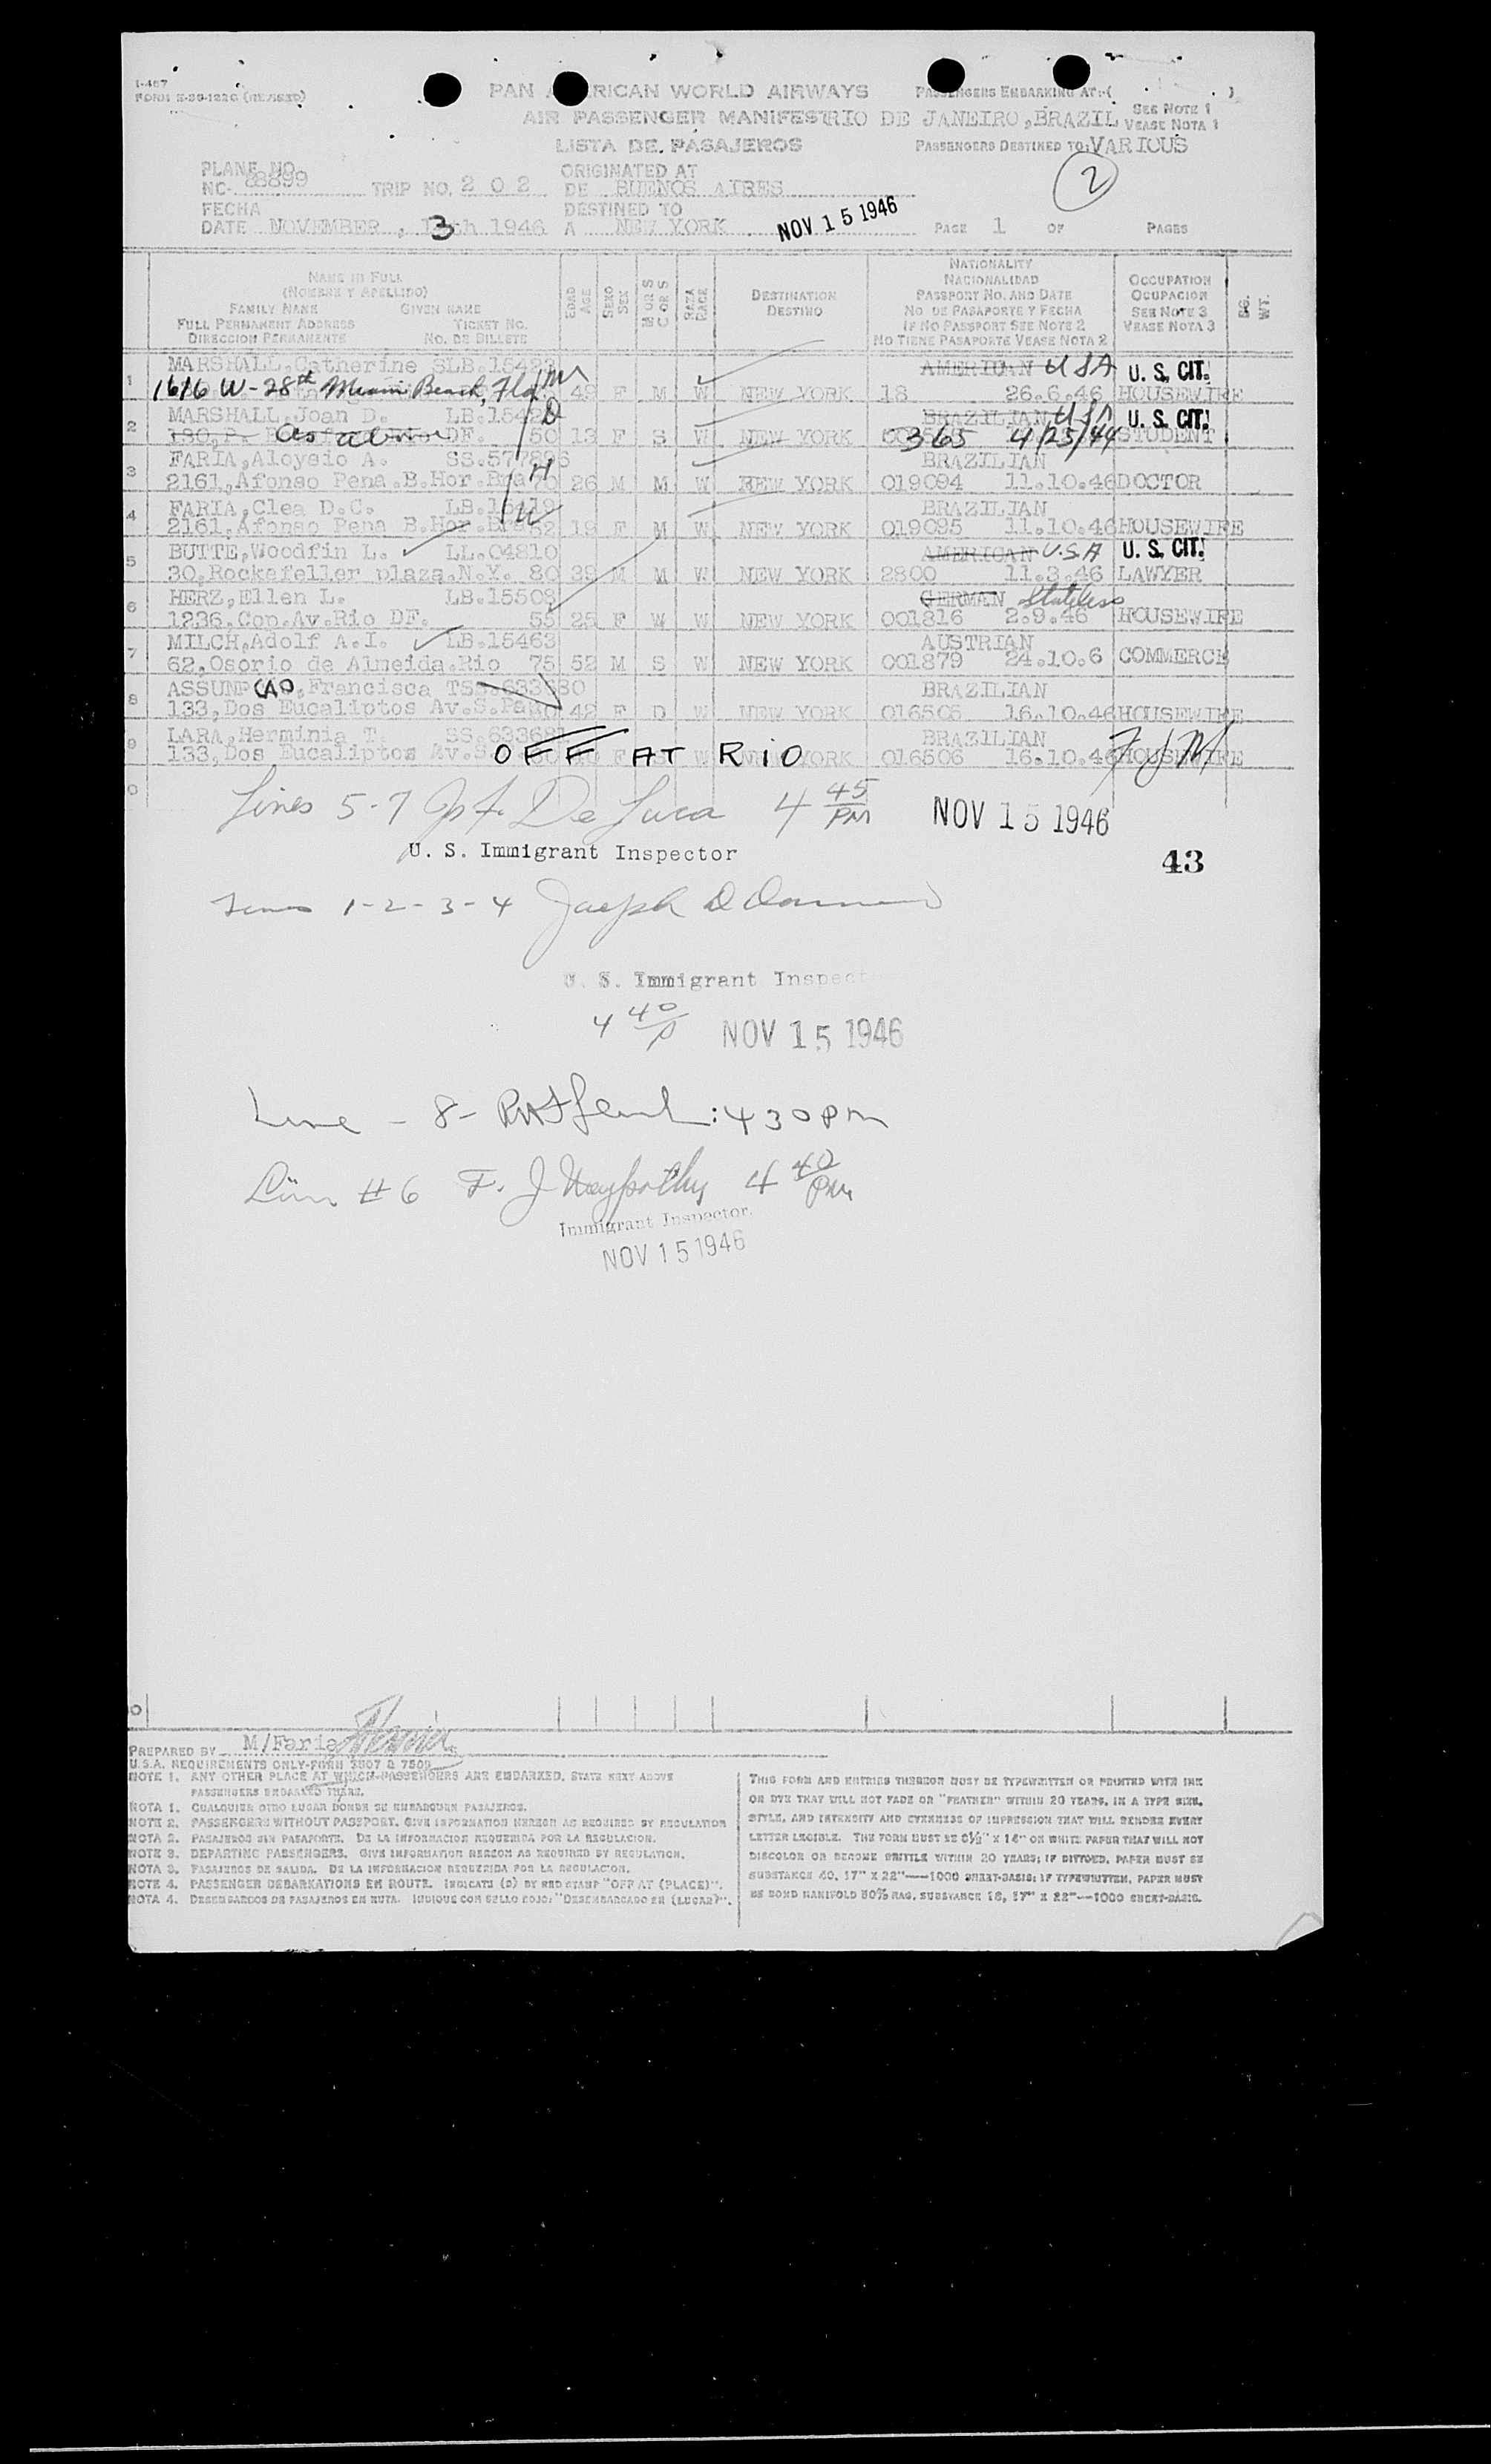 I-467
FORM E-36-122G (REVISED)
PAN AMERICAN WORLD AIRWAYS
PASSENGERS EMBARKING AT:( )
AIR PASSENGER MANIFEST RIO DE JANEIRO, BRAZIL SEE NOTE 1
VEASE NOTA 1
LISTA DE PASAJEROS
PASSENGERS DESTINED TO: VARIOUS
2
PLANE NO.
NC- 88899 TRIP NO. 2 0 2
ORIGINATED AT
DE BUENOS AIRES
FECHA
DATE NOVEMBER, 13th 1946
DESTINED TO
A NEW YORK
NOV 15 1946
PAGE 1 OF PAGES
NAME IN FULL
(NOMBRE Y APELLIDO)
FAMILY NAME GIVEN NAME
FULL PERMANENT ADDRESS TICKET NO.
DIRECCION PERMANENTE NO. DE BILLETE
EDAD AGE
SEXO SEX
M OR S C OR S
RAZA RACE
DESTINATION
DESTINO
NATIONALITY
NACIONALIDAD
PASSPORT NO. AND DATE
NO. DE PASAPORTE Y FECHA
IF NO PASSPORT SEE NOTE 2
NO TIENE PASAPORTE VEASE NOTA 2
OCCUPATION
OCUPACION
SEE NOTE 3
VEASE NOTA 3
BG. WT.
MARSHALL, Catherine S LB.15423 AMERICAN USA U. S. CIT.
1 1616 W-28th Miami Beach, Fla. M 49 F M W NEW YORK 18 26.6.46 HOUSEWIFE
MARSHALL, Joan D. LB.1542 D BRAZILIAN USA U. S. CIT.
2 as above DF. 50 13 F S W NEW YORK 365 4/25/44 STUDENT
FARIA, Aloysio A. SS.577896 H BRAZILIAN
3 2161, Afonso Pena.B.Hor.Bra 70 26 M M W NEW YORK 019094 11.10.46 DOCTOR
FARIA, Clea D.C. LB.15419 W BRAZILIAN
4 2161, Afonso Pena B.Hor.Bra 52 19 F M W NEW YORK 019095 11.10.46 HOUSEWIFE
BUTTE, Woodfin L. LL.04810 AMERICAN U.S.A U. S. CIT.
5 30, Rockafeller plaza.N.Y. 80 39 M M W NEW YORK 2800 11.3.46 LAWYER
HERZ, Ellen L. LB.15508 GERMAN Stateless
6 1236. Cop.Av.Rio DF. 55 25 F W W NEW YORK 001816 2.9.46 HOUSEWIFE
MILCH, Adolf A.I. LB.15463 AUSTRIAN
7 62, Osorio de Almeida.Rio 75 52 M S W NEW YORK 001879 24.10.6 COMMERCE
ASSUMPCAO, Francisca T SS.633680 BRAZILIAN
8 133, Dos Eucaliptos Av.S.Pa 42 F D W NEW YORK 016505 16.10.46 HOUSEWIFE
LARA, Herminia T. SS.63368 BRAZILIAN
9 133, Dos Eucaliptos Av.S. OFF AT RIO NEW YORK 016506 16.10.46 HOUSEWIFE FJM
0
Lines 5-7 De Luca 4 45 PM NOV 15 1946
U. S. Immigrant Inspector
43
Lines 1-2-3-4 Joseph D
U. S. Immigrant Inspect
4 40 P NOV 15 1946
Line - 8 - : 430 PM
Line # 6 F. J. 4 40 PM
Immigrant Inspector.
NOV 15 1946
0
PREPARED BY M/Faria
U.S.A. REQUIREMENTS ONLY-FORM 3507 & 7509
NOTE 1. ANY OTHER PLACE AT WHICH PASSENGERS ARE EMBARKED, STATE NEXT ABOVE
PASSENGERS EMBARKED THERE.
NOTA 1. CUALQUIER OTRO LUGAR DONDE SE EMBARQUEN PASAJEROS.
NOTE 2. PASSENGERS WITHOUT PASSPORT. GIVE INFORMATION HEREON AS REQUIRED BY REGULATION
NOTA 2. PASAJEROS SIN PASAPORTE. DE LA INFORMACION REQUERIDA POR LA REGULACION.
NOTE 3. DEPARTING PASSENGERS. GIVE INFORMATION HEREON AS REQUIRED BY REGULATION.
NOTA 3. PASAJEROS DE SALIDA. DE LA INFORMACION REQUERIDA POR LA REGULACION.
NOTE 4. PASSENGER DEBARKATIONS EN ROUTE. INDICATE (D) BY RED STAMP "OFF AT (PLACE)".
NOTA 4. DESEMBARCOS DE PASAJEROS EN RUTA. INDIQUE CON SELLO ROJO: "DESEMBARCADO EN (LUGAR)".
THIS FORM AND ENTRIES THEREON MUST BE TYPEWRITTEN OR PRINTED WITH INK
OR DYE THAT WILL NOT FADE OR "FEATHER" WITHIN 20 YEARS, IN A TYPE SIZE,
STYLE, AND INTENSITY AND EVENNESS OF IMPRESSION THAT WILL RENDER EVERY
LETTER LEGIBLE. THE FORM MUST BE 8½" X 14" ON WHITE PAPER THAT WILL NOT
DISCOLOR OR BECOME BRITTLE WITHIN 20 YEARS; IF DITTOED, PAPER MUST BE
SUBSTANCE 40, 17" X 22"—1000 SHEET-BASIS; IF TYPEWRITTEN, PAPER MUST
BE BOND MANIFOLD 50% RAG, SUBSTANCE 16, 17" X 22"—1000 SHEET-BASIS.